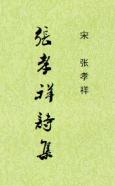 宋 张孝祥
張孝祥詩集